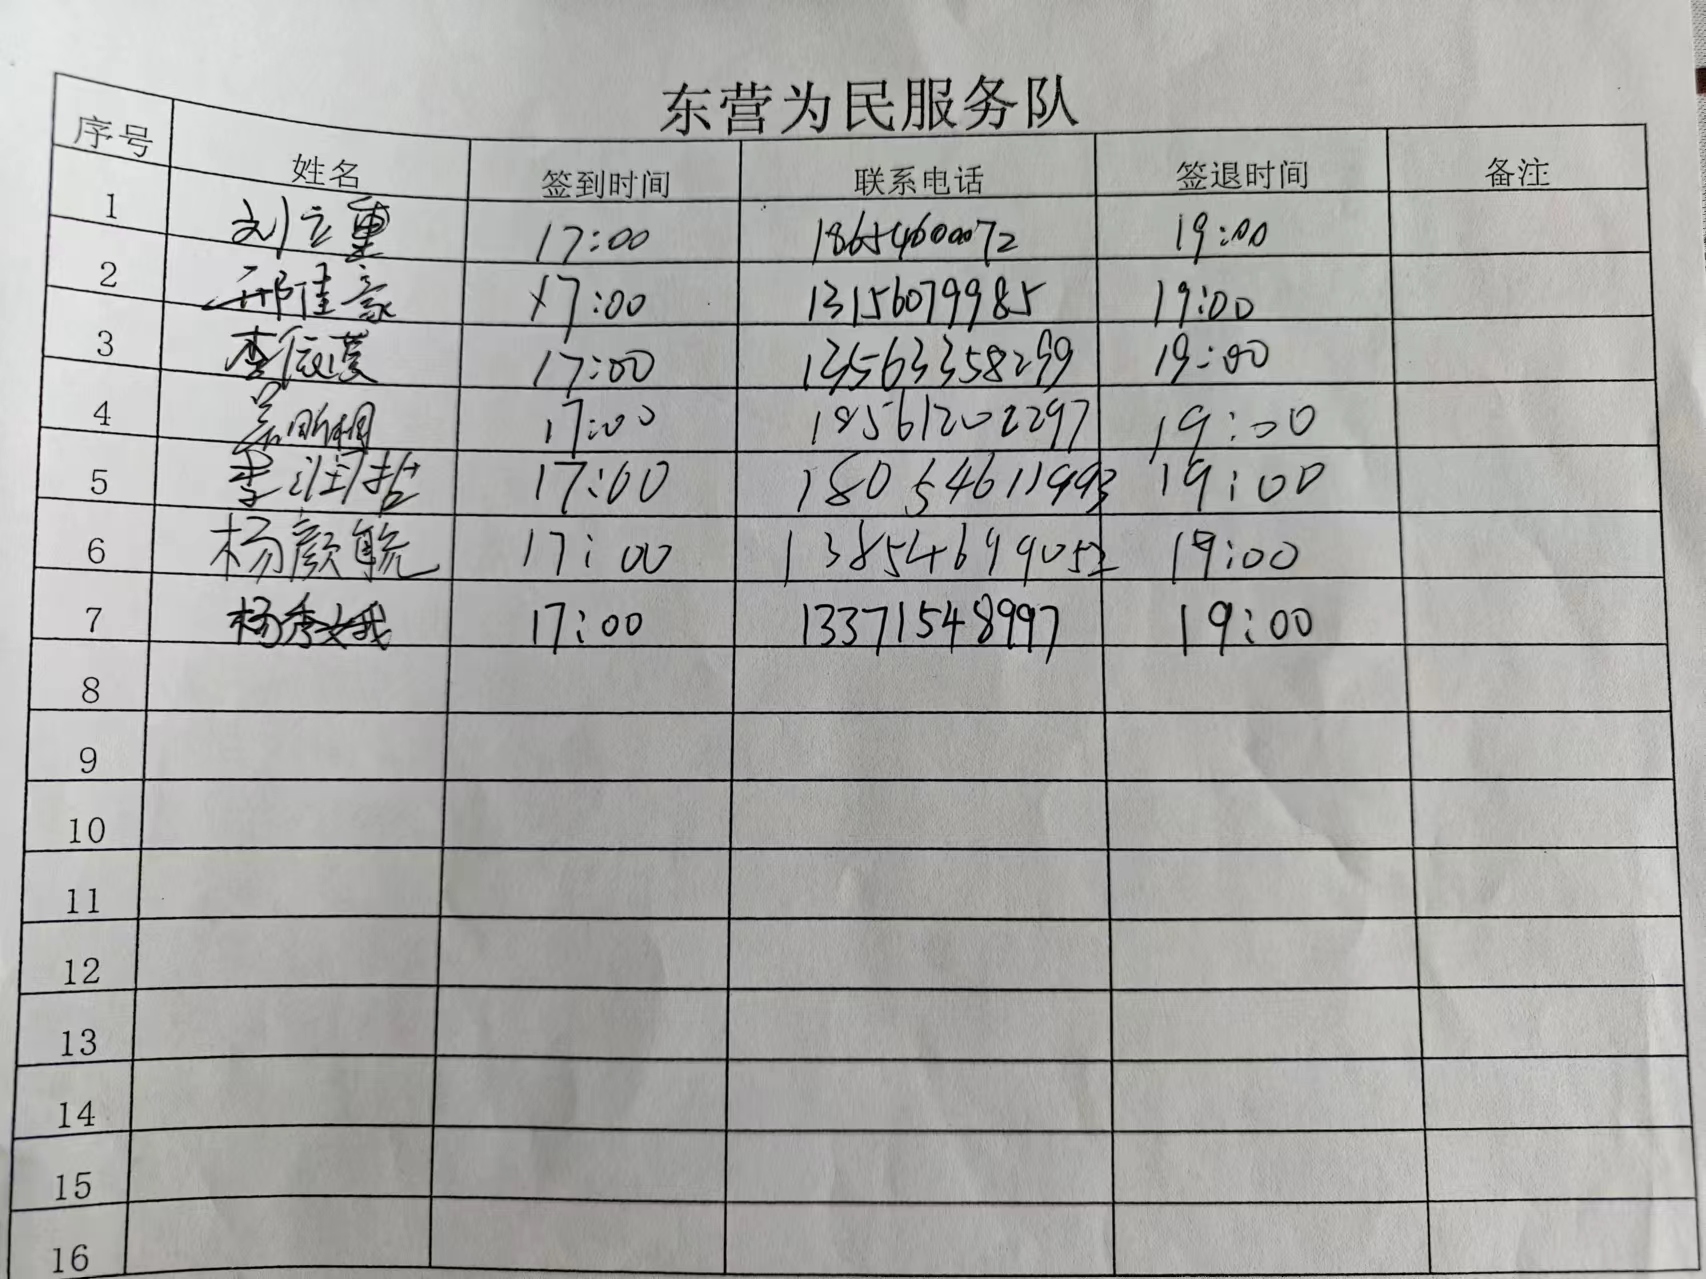 东营为民服务队
序号 姓名 签到时间 联系电话 签退时间 备注
1 刘立重 17:00 18654600072 19:00
2 邢佳豪 17:00 13156079985 19:00
3 李 17:00 13563358299 19:00
4 17:00 18561202297 19:00
5 李润哲 17:00 18054611993 19:00
6 杨颜毓 17:00 13854699052 19:00
7 杨秀娥 17:00 13371548997 19:00
8
9
10
11
12
13
14
15
16